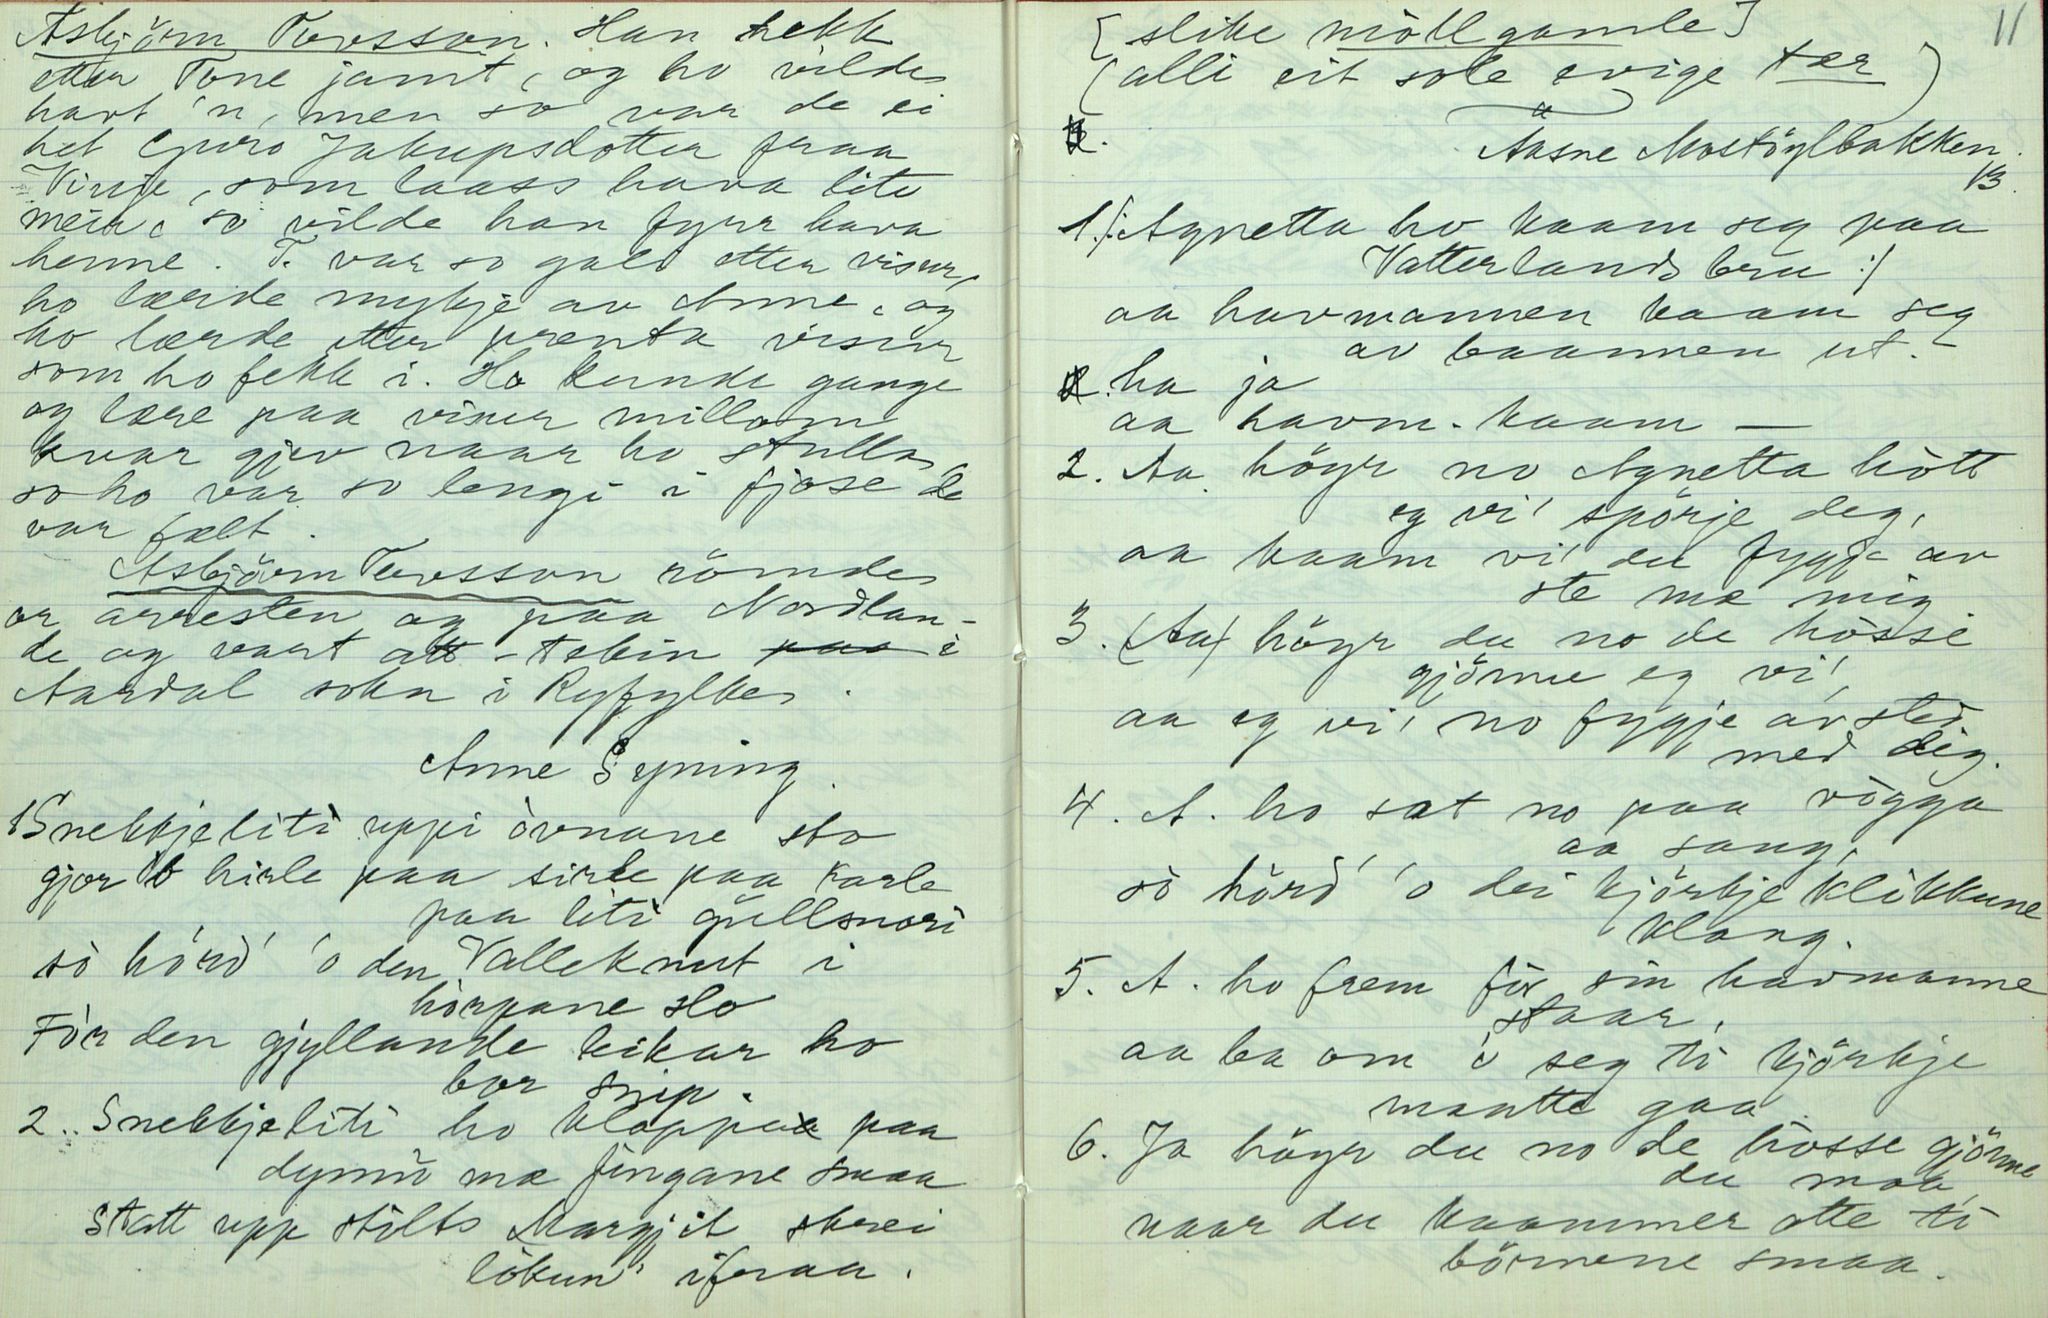 Asbjörn Tovsson. Han hekk
etter Tone jamt, og ho vilde
havt 'n, men so var de ei
het Guro Jakupsdotter fraa
Vinje, som laass hava lite
meir, so vilde han fyrr hava
henne. T. var so gale etter visur,
ho lærde mykje av Anne, og
ho lærde etter prenta visur
som ho fekk i. Ho kunde gange
og lære paa visur millom
kvar gjev naar ho stulla
so ho var so lengi i fjose de
var fælt.
Asbjörn Tovsson römde
or arresten og paa Nordlan-
de og vart att-tekin paa i
Aardal sokn i Ryfylke.
Anne Syning.
1 Snekkjeliti uppi övnane sto
gjor 'o hirle paa sirle paa karle
paa liti gullsnori
so hörd' 'o den Valleknut i
horpane slo
För den gjyllande leikar ho
bar snip.
2. Snekkjeliti ho kloppaa paa
dynni mæ fingane smaa
Statt upp stilts Margjit skrei
lokun' ifraa.
11
[slike möll gamle]
(alli eit sole evige tær)
Aasne Mostöylbakken.
13.
1. /: Agnetta ho kaam seg paa
Vatterlands bru :/
aa havmannen kaam seg
av baannen ut. -
ha ja
aa havm. kaam —
2. Aa höyr no Agnetta hött
eg vi' spörje deg,
aa kaam vi' du fygje av
ste mæ mig
3. (Aa) höyr du no de hosse
gjörne eg vi',
aa eg vi' no fygje av sted
med deig.
4. A. ho sat no paa vogga
aa sang,
so hörd' 'o dei kjörkje klikkune
klang.
5. A. ho frem för sin havmanne
staar,
aa ba om o seg ti kjörkje
maatte gaa
6. Ja höyr du no de hosse gjörne
du maa
naar du kaammer atte ti
börnene smaa.